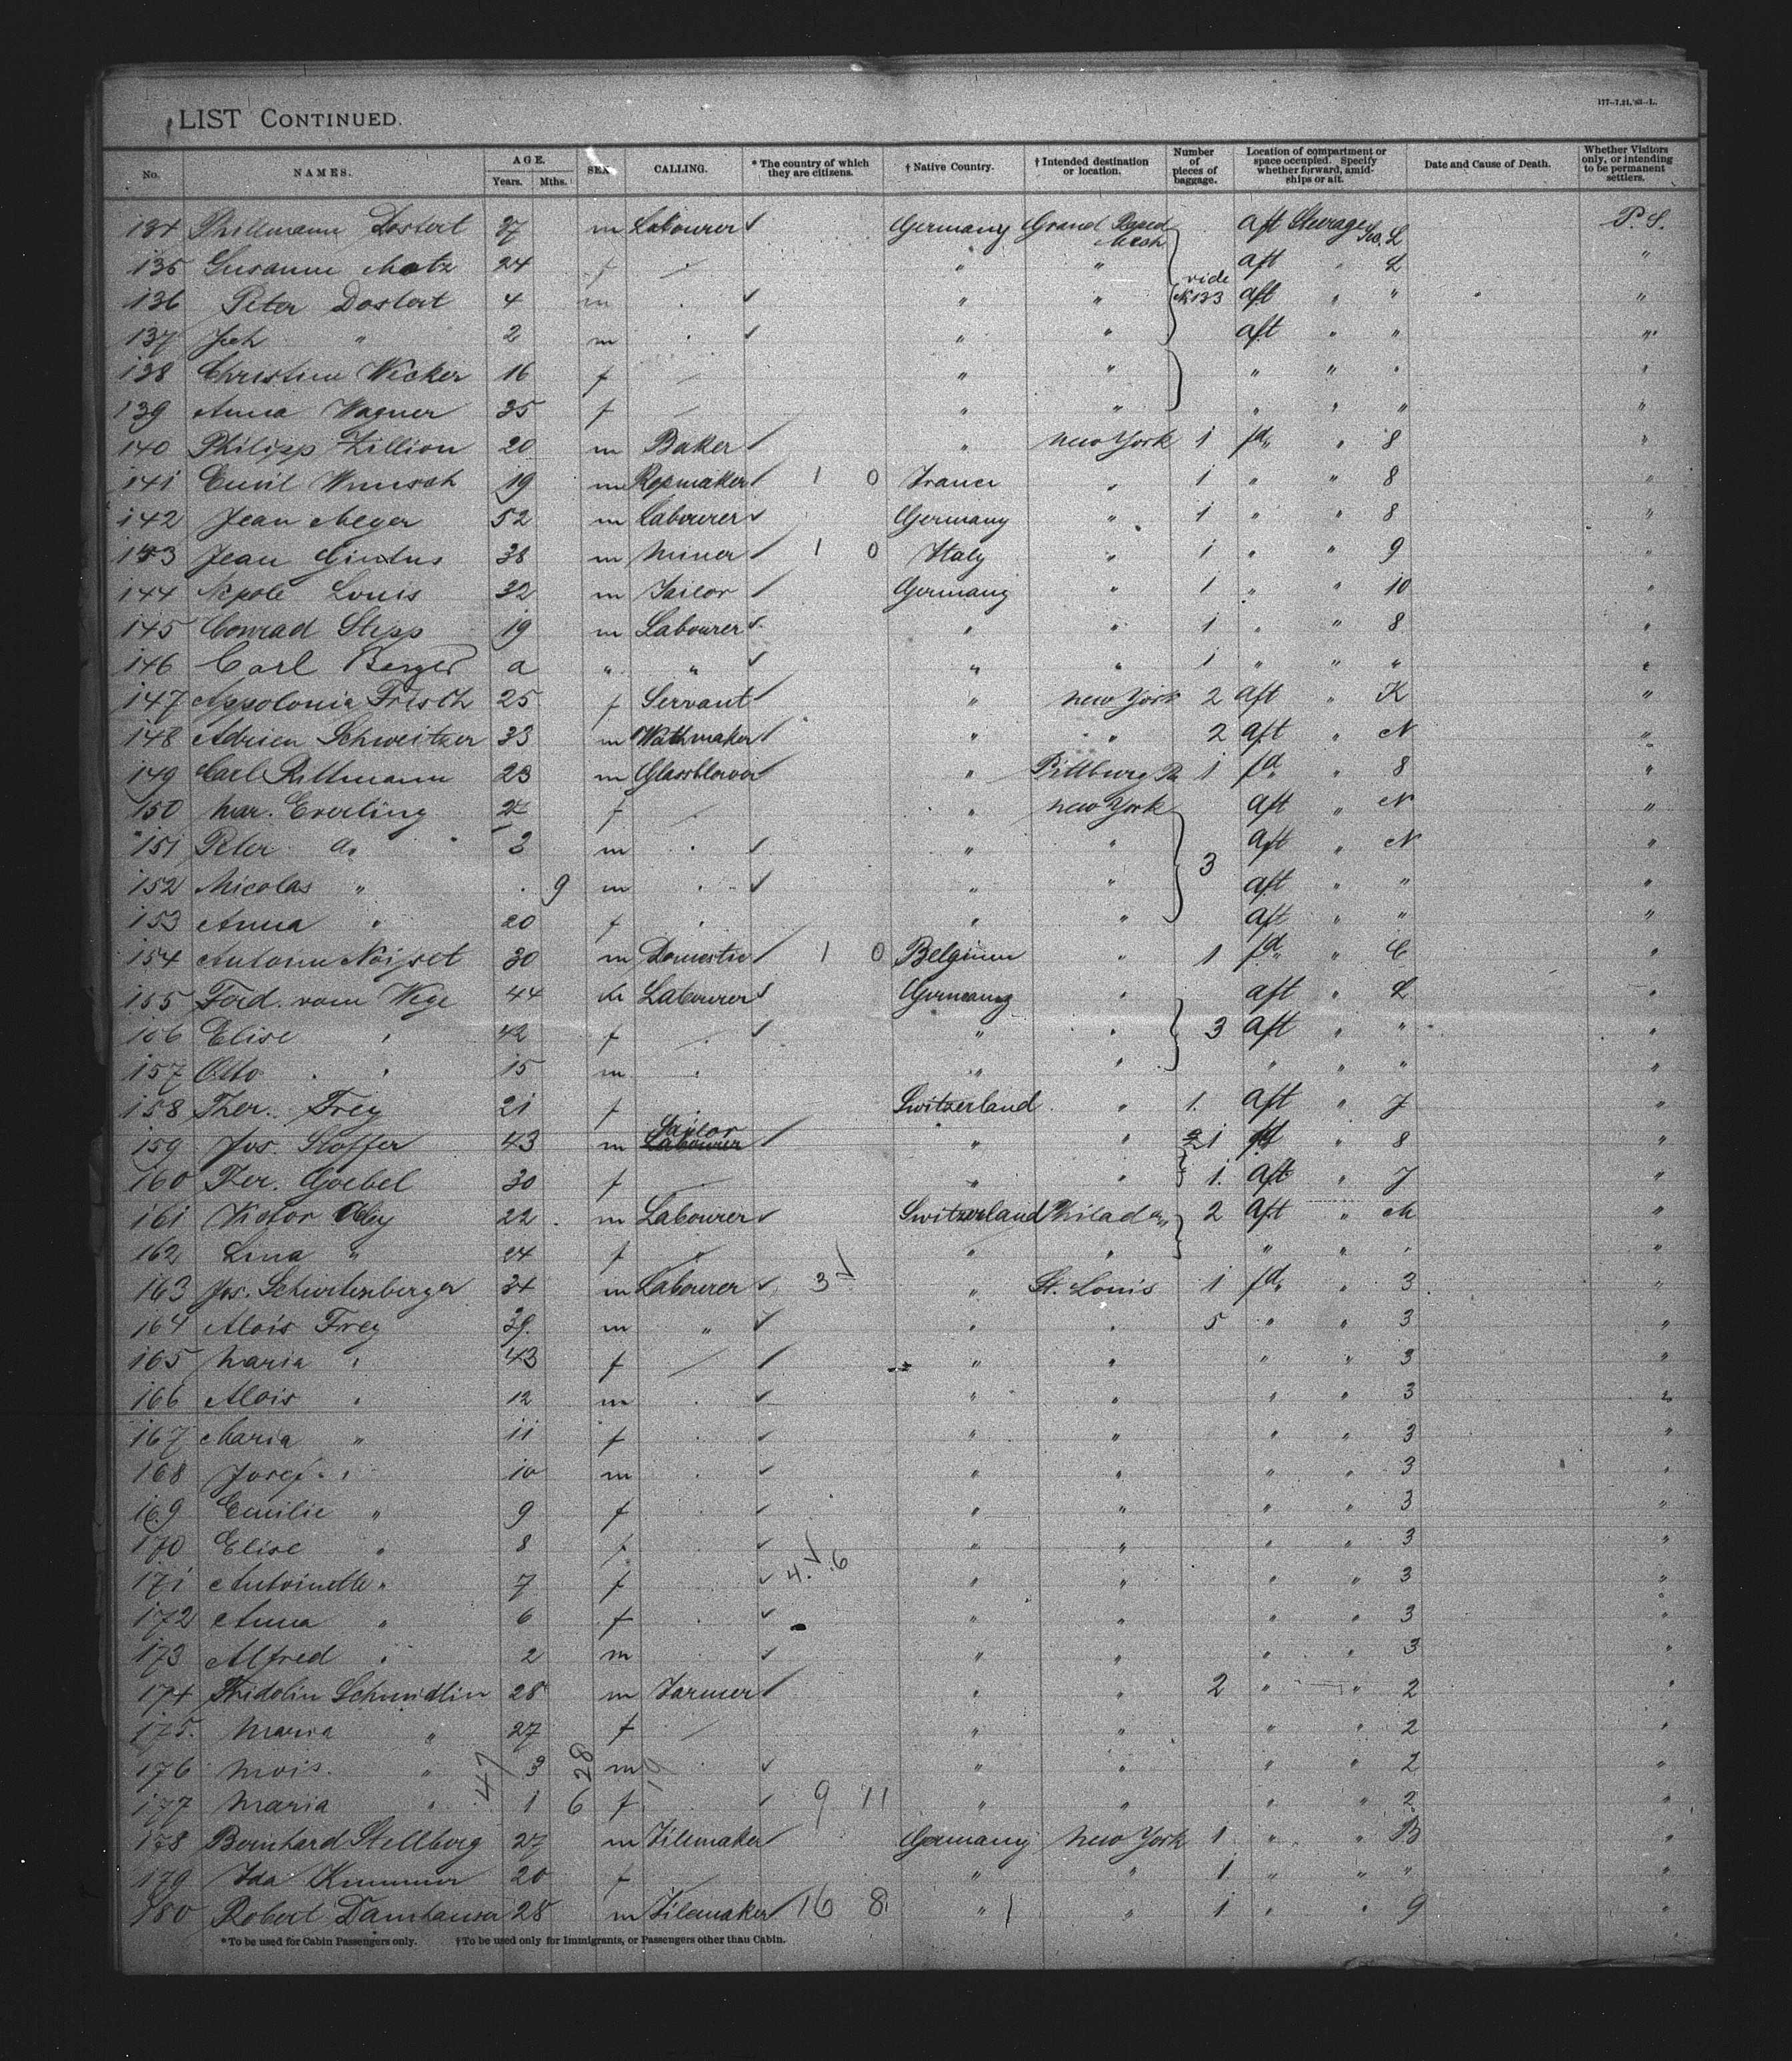 177-7.21.'93-L.
LIST CONTINUED.
No. NAMES. AGE. Years. Mths. SEX CALLING. * The country of which they are citizens. † Native Country. † Intended destination or location. Number of pieces of baggage. Location of compartment or space occupied. Specify whether forward, amidships or aft. Date and Cause of Death. Whether Visitors only, or intending to be permanent settlers.
134 Phillmann Dostert 37 m Labourer ✓ Germany Grand Rapid Mich aft Steerage No. L P. S.
135 Susanne Matz 24 f / " " aft " L "
136 Peter Dostert 4 m . ✓ " " vide № 133 aft " " "
137 Joh " 2 m . ✓ " " aft " " "
138 Christine Wicker 16 f / " " " " " "
139 Anna Wagner 35 f / " " " " " "
140 Philipp Zillion 20 m Baker / " New York 1 fd " 8 "
141 Emil Wunsch 19 m Ropmaker / 1 0 France " 1 " " 8 "
142 Jean Meyer 52 m Labourer ✓ Germany " 1 " " 8 "
143 Jean Gindus 38 m Miner / 1 0 Italy " 1 " " 9 "
144 Nepole Louis 32 m Tailor / Germany " 1 " " 10 "
145 Conrad Stepp 19 m Labourer ✓ " " 1 " " 8 "
146 Carl Berger a " " ✓ " " 1 " " " "
147 Appolonia Frisch 25 f Servant / " New York 2 aft " K "
148 Adrien Schweitzer 33 m Wathmaker / " " 2 aft " N "
149 Carl Rittmann 23 m Glassblower / " Pittburg Pa 1 fd " 8 "
150 Mar. Everling 24 f / " New York aft " N "
151 Peter " 3 m . ✓ " " 3 aft " N "
152 Nicolas " . 9 m . ✓ " " aft " " "
153 Anna " 20 f . " " aft " " "
154 Antoine Noiset 30 m Domestic / 1 0 Belgium " 1 fd " C "
155 Ferd. vom Wege 44 m Labourer ✓ Germany " aft " L "
156 Elise " 42 f . ✓ " " 3 aft " " "
157 Otto " 15 m . " " " " " "
158 Ther. Frey 21 f Switzerland " 1. aft " J "
159 Jos. Stoffer 43 m Tailor Labourer / " " 2 1 fd " 8 "
160 Ther. Goebel 30 f / " " 1. aft " J "
161 Victor Oby 22 m Labourer ✓ Switzerland Philada 2 aft " M "
162 Lina " 24 f " " " " " " "
163 Jos. Schurtenberger 34 m Labourer ✓ 3 ✓ " St. Louis 1 fd " 3 "
164 Alois Frey 39 m " ✓ " " 5 " " 3 "
165 Maria " 43 f / / " " " " 3 "
166 Alois " 12 m . ✓ " " " " 3 "
167 Maria " 11 f . ✓ " " " " 3 "
168 Josef " 10 m . ✓ " " " " 3 "
169 Emilie " 9 f . ✓ " " " " 3 "
170 Elise " 8 f . ✓ " " " " 3 "
171 Antoinette " 7 f ✓ 4. ✓ .6 " " " " 3 "
172 Anna " 6 f . ✓ " " " " 3 "
173 Alfred " 2 m . ✓ " " " " 3 "
174 Fridolin Schmidlin 28 m Farmer / " " 2 " " 2 "
175. Maria " 27 f / " " " " 2 "
176 " 47 3 28 m 19 ✓ " " " " 2 "
177 Maria " 1 6 f ✓ 9 11 " " " " 2 "
178 Bernhard Stellberg 27 m Tilemaker / Germany New York 1 " " B "
179 Ida Kummer 20 f / " " 1 " " " "
180 Robert Damhauser 28 m Tilemaker / 16 8 " / " 1 " " 9 "
*To be used for Cabin Passengers only. †To be used only for Immigrants, or Passengers other than Cabin.